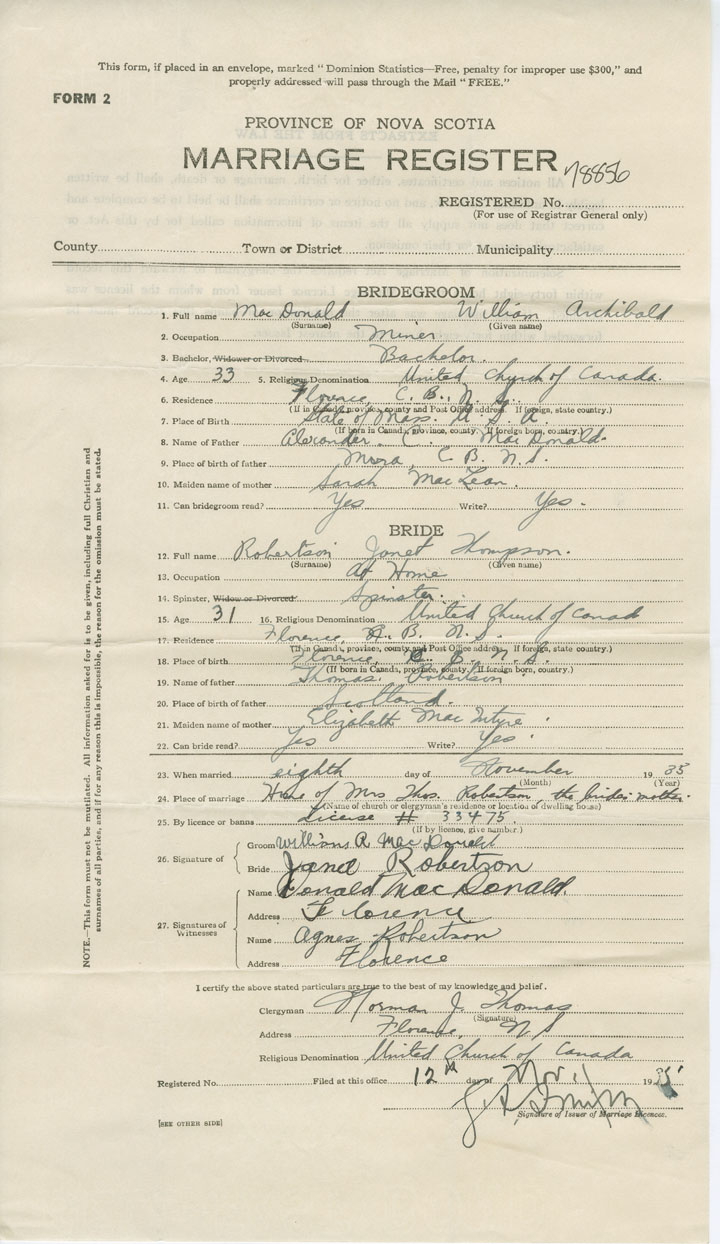 This form, if placed in an envelope, marked "Dominion Statistics—Free, penalty for improper use $300," and
properly addressed will pass through the Mail "FREE."
FORM 2
PROVINCE OF NOVA SCOTIA
MARRIAGE REGISTER
78856
REGISTERED No.
(For use of Registrar General only)
County Town or District Municipality
BRIDEGROOM
1. Full name MacDonald William Archibald
(Surname) (Given name)
2. Occupation Miner
3. Bachelor, Widower or Divorced Bachelor.
4. Age 33 5. Religious Denomination United Church of Canada.
6. Residence Florence, C. B. N. S.
(If in Canada, province, county and Post Office address. If foreign, state country.)
7. Place of Birth State of Mass. U. S. A.
(If born in Canada, province, county. If foreign born, country.)
8. Name of Father Alexander C. MacDonald.
9. Place of birth of father Mira, C. B. N. S.
10. Maiden name of mother Sarah MacLean.
11. Can bridegroom read? Yes Write? Yes.
BRIDE
12. Full name Robertson Janet Thompson.
(Surname) (Given name)
13. Occupation At Home
14. Spinster, Widow or Divorced Spinster.
15. Age 31 16. Religious Denomination United Church of Canada
17. Residence Florence C. B. N. S.
(If in Canada, province, county and Post Office address. If foreign, state country.)
18. Place of birth Florence, C. B. N. S.
(If born in Canada, province, county. If foreign born, country.)
19. Name of father Thomas Robertson
20. Place of birth of father Scotland.
21. Maiden name of mother Elizabeth MacIntyre
22. Can bride read? Yes Write? Yes
23. When married eighth day of November 1935
(Month) (Year)
24. Place of marriage Home of Mrs Thos. Robertson, the brides mother.
(Name of church or clergyman's residence or location of dwelling house)
25. By licence or banns License # 33475.
(If by licence, give number.)
26. Signature of
Groom William A MacDonald
Bride Janet Robertson
27. Signatures of Witnesses
Name Donald MacDonald
Address Florence
Name Agnes Robertson
Address Florence
I certify the above stated particulars are true to the best of my knowledge and belief.
Clergyman Norman J. Thomas
(Signature)
Address Florence, N S
Religious Denomination United Church of Canada
Registered No. Filed at this office 12th day of Nov. 1935
Signature of Issuer of Marriage Licences.
[SEE OTHER SIDE]
NOTE.—This form must not be mutilated. All information asked for is to be given, including full Christian and
surnames of all parties, and if for any reason this is impossible, the reason for the omission must be stated.